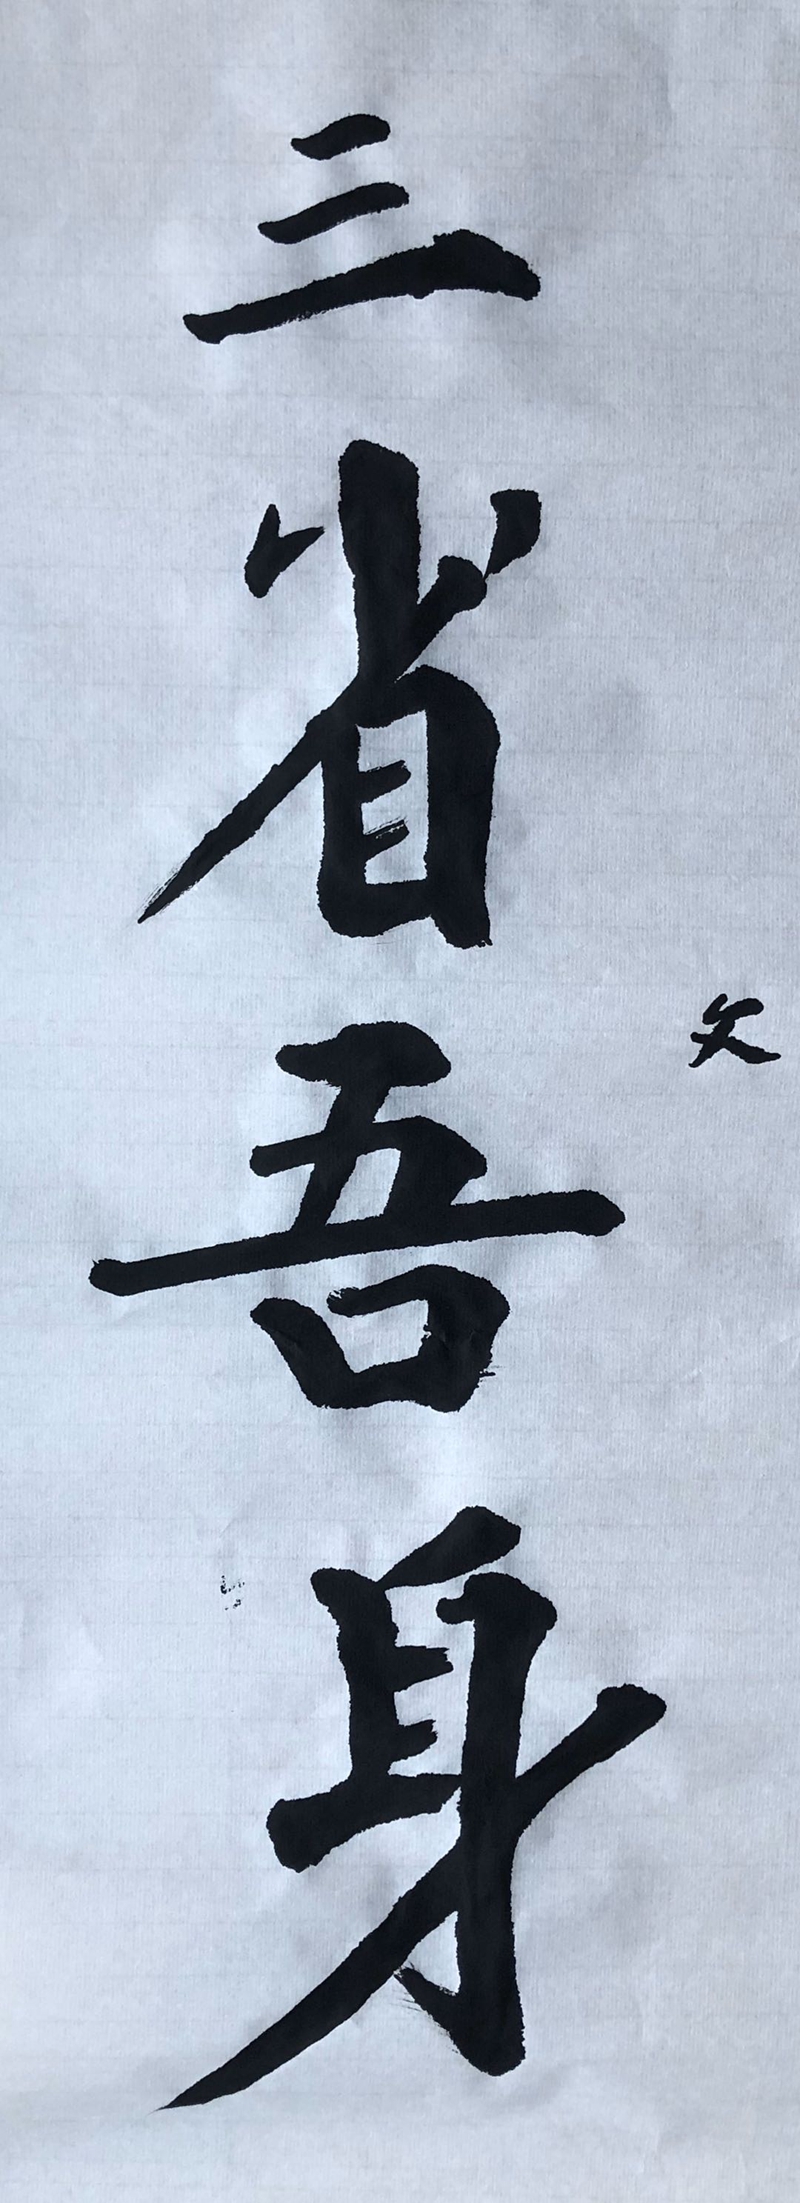 三省吾身